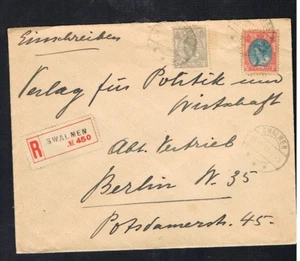 Einschreiben
Verlag für Politik und
Wirtschaft
R SWALMEN
№ 450
Abt. Vertrieb
SWALMEN
Berlin W. 35
Potsdamerstr. 45.